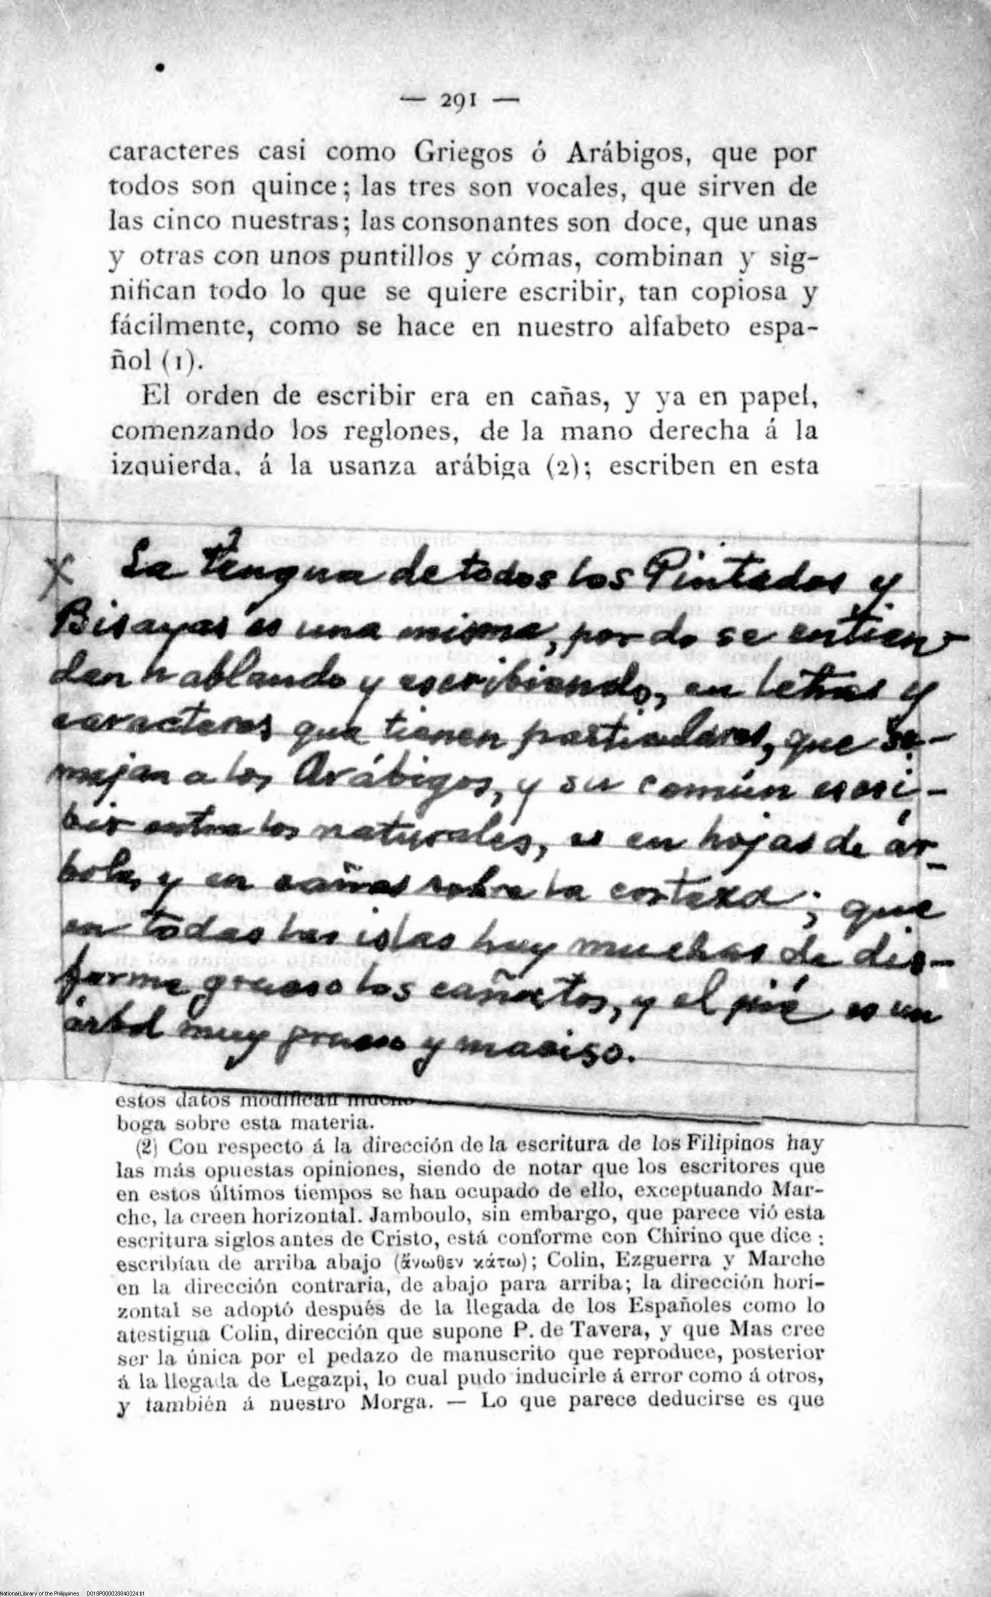 — 291 —
caracteres casi como Griegos ó Arábigos, que por
todos son quince; las tres son vocales, que sirven de
las cinco nuestras; las consonantes son doce, que unas
y otras con unos puntillos y cómas, combinan y sig-
nifican todo lo que se quiere escribir, tan copiosa y
fácilmente, como se hace en nuestro alfabeto espa-
ñol (1).
El orden de escribir era en cañas, y ya en papel,
comenzando los reglones, de la mano derecha á la
izquierda, á la usanza arábiga (2); escriben en esta
x La lengua de todos los Pintados y
Bisayas es una misma, por do se entien-
den hablando y escribiendo, en letras y
caracteres que tienen particulares, que se-
mejan a los Arábigos, y su común escri-
bir entre los naturales, es en hojas de ár-
boles, y en cañas sobre la corteza; que
en todas las islas hay muchas de dis-
forme grueso los cañutos, y el pié es un
árbol muy grueso y maciso.
estos datos modifican mucho
boga sobre esta materia.
(2) Con respecto á la dirección de la escritura de los Filipinos hay
las más opuestas opiniones, siendo de notar que los escritores que
en estos últimos tiempos se han ocupado de ello, exceptuando Mar-
che, la creen horizontal. Jamboulo, sin embargo, que parece vió esta
escritura siglos antes de Cristo, está conforme con Chirino que dice :
escribían de arriba abajo (ἄνωθεν κάτω); Colin, Ezguerra y Marche
en la dirección contraria, de abajo para arriba; la dirección hori-
zontal se adoptó después de la llegada de los Españoles como lo
atestigua Colin, dirección que supone P. de Tavera, y que Mas cree
ser la única por el pedazo de manuscrito que reproduce, posterior
á la llegada de Legazpi, lo cual pudo inducirle á error como á otros,
y también á nuestro Morga. — Lo que parece deducirse es que
National Library of the Philippines